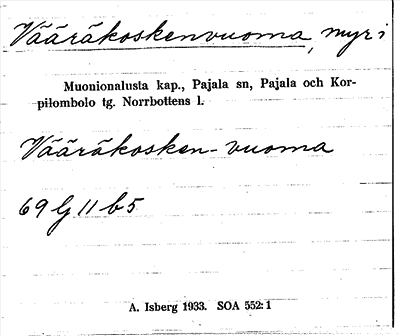 Vääräkoskenvuoma, myr i
Muonionalusta kap., Pajala sn, Pajala och Kor-
pilombolo tg. Norrbottens l.
Vääräkosken-vuoma
69 G 11 b 5
A. Isberg 1933. SOA 552: 1